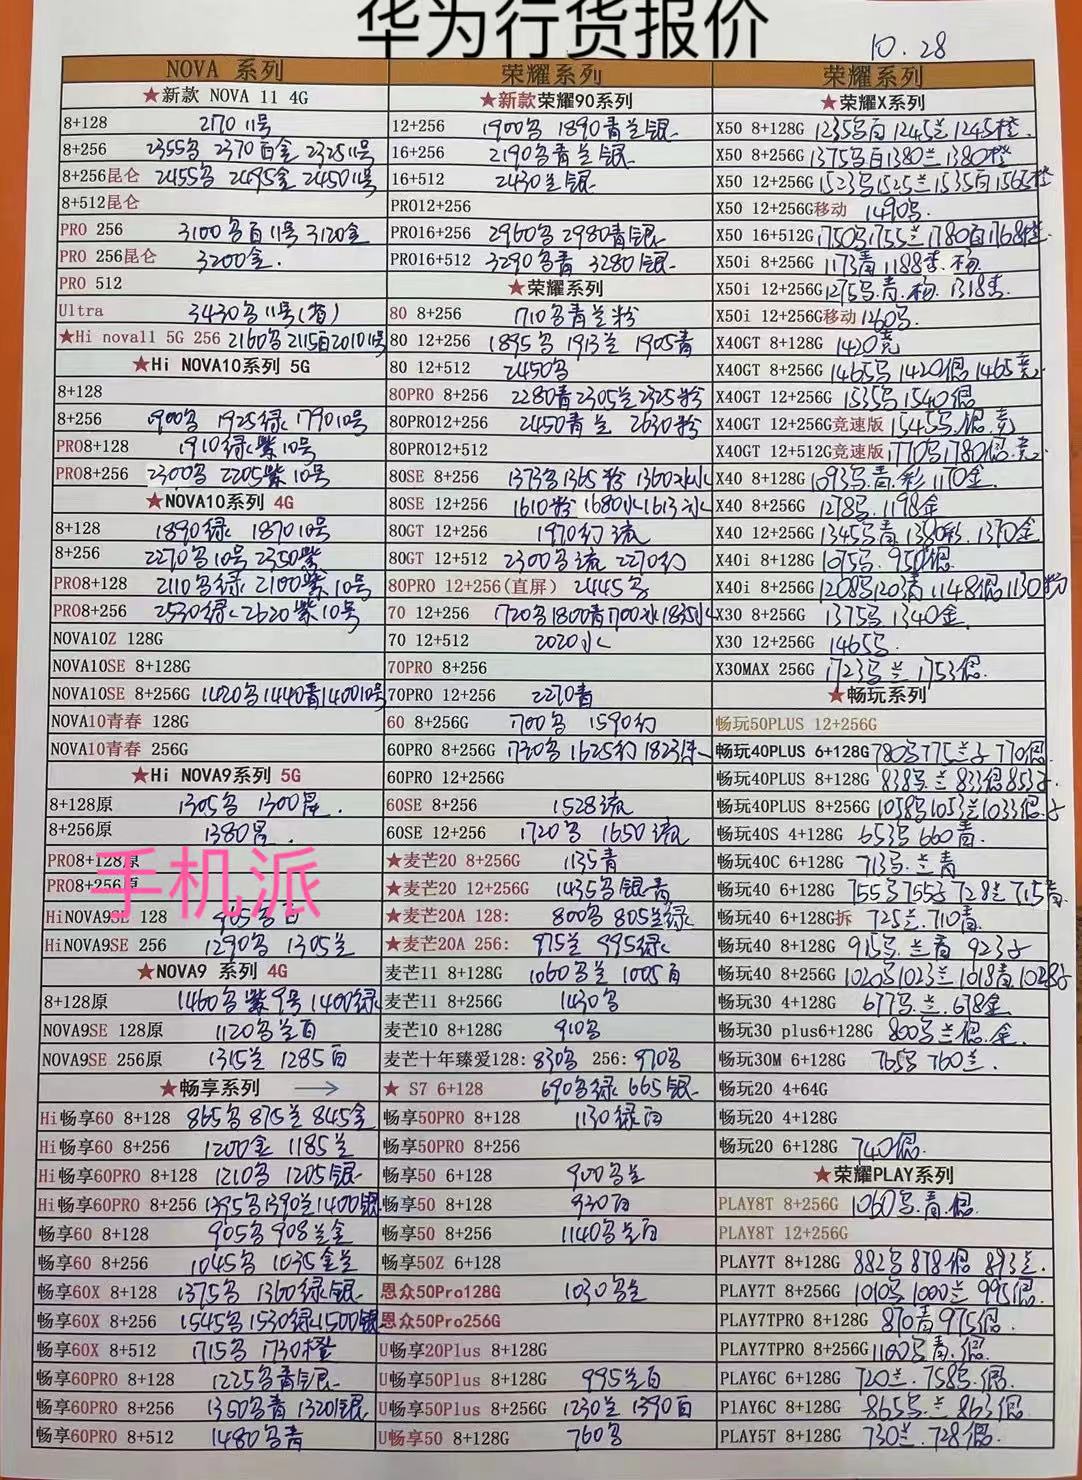 华为行货报价
10.28
NOVA 系列
★新款 NOVA 11 4G
8+128 2170 11号
8+256 2355名 2370百金 2325 11号
8+256昆仑 2455名 2495金 2450 11号
8+512昆仑
PRO 256 3100名百11号 3120金
PRO 256昆仑 3200金.
PRO 512
Ultra 3430名11号(省)
★Hi nova11 5G 256 2160名 2115百2010 11号
★Hi NOVA10系列 5G
8+128
8+256 1900名 1925绿 1790 10号
PRO8+128 1910绿紫10号
PRO8+256 2300名 2205紫10号
★NOVA10系列 4G
8+128 1890绿 1870 10号
8+256 2270名10号 2350紫
PRO8+128 2110名绿 2100紫10号
PRO8+256 2530绿 2620紫10号
NOVA10Z 128G
NOVA10SE 8+128G
NOVA10SE 8+256G 1420名1440青1400 10号
NOVA10青春 128G
NOVA10青春 256G
★Hi NOVA9系列 5G
8+128原 1305名 1300黑.
8+256原 1380黑.
PRO8+128原
PRO8+256原
手机派
HiNOVA9SE 128 905名白
HiNOVA9SE 256 1290名 1305兰
★NOVA9 系列 4G
8+128原 1460名紫9号 1400绿
NOVA9SE 128原 1120名兰百
NOVA9SE 256原 1315兰 1285百
★畅享系列 →
Hi畅享60 8+128 865名 875兰 845金
Hi畅享60 8+256 1200金 1185兰
Hi畅享60PRO 8+128 1210名 1205银
Hi畅享60PRO 8+256 1395名1390兰1400银
畅享60 8+128 905名 908兰金
畅享60 8+256 1045名 1035金兰
畅享60X 8+128 1375名 1360绿银
畅享60X 8+256 1545名1530绿1500银
畅享60X 8+512 1715名 1730橙
畅享60PRO 8+128 1225名青银
畅享60PRO 8+256 1350名青 1320银
畅享60PRO 8+512 1480名青
荣耀系列
★新款荣耀90系列
12+256 1900名 1890青兰银
16+256 2190名青兰银
16+512 2430兰银
PRO12+256
PRO16+256 2960名 2980青银
PRO16+512 3290名青 3280银
★荣耀系列
80 8+256 1710名青兰粉
80 12+256 1895名 1913兰 1905青
80 12+512 2450名
80PRO 8+256 2280青2305兰2325粉
80PRO12+256 2450青兰 2630粉
80PRO12+512
80SE 8+256 1373名1365粉 1360水
80SE 12+256 1610粉 1680水1613冰
80GT 12+256 1970幻流
80GT 12+512 2300名流 2270幻
80PRO 12+256(直屏) 2445名
70 12+256 1720名1800青1700冰1835水
70 12+512 2020水
70PRO 8+256
70PRO 12+256 2270青
60 8+256G 1700名 1590幻
60PRO 8+256G 1730名 1625幻 1823绿
60PRO 12+256G
60SE 8+256 1528流
60SE 12+256 1720名 1650流
★麦芒20 8+256G 1135青
★麦芒20 12+256G 1435名银青
★麦芒20A 128: 800名 805兰绿
★麦芒20A 256: 975兰 995绿
麦芒11 8+128G 1060名兰 1005百
麦芒11 8+256G 1430名
麦芒10 8+128G 910名
麦芒十年臻爱128: 830名 256: 970名
★ S7 6+128 690名绿 665银
畅享50PRO 8+128 1130绿百
畅享50PRO 8+256
畅享50 6+128 900名兰
畅享50 8+128 930百
畅享50 8+256 1140名兰百
畅享50Z 6+128
恩众50Pro128G 1030名兰
恩众50Pro256G
U畅享20Plus 8+128G
U畅享50Plus 8+128G 995兰百
U畅享50Plus 8+256G 1230兰 1390百
U畅享50 8+128G 760名
荣耀系列
★荣耀X系列
X50 8+128G 1235名百1245兰1245橙.
X50 8+256G 1375名百1380兰1380橙
X50 12+256G 1523名1525兰1535百1565橙
X50 12+256G移动 1490名.
X50 16+512G 1750名1755兰1780百1768橙.
X50i 8+256G 1173青 1188李.杨.
X50i 12+256G 1275名.青.杨. 1318李.
X50i 12+256G移动 1260名.
X40GT 8+128G 1420竞
X40GT 8+256G 1465名1420银1465竞
X40GT 12+256G 1535名1540银
X40GT 12+256G竞速版 1545名.银.竞
X40GT 12+512G竞速版 1770名1780银.竞
X40 8+128G 1093名.青.彩 1170金.
X40 8+256G 1278名. 1198金
X40 12+256G 1345名青 1380彩. 1370金
X40i 8+128G 1075名. 950银.
X40i 8+256G 1208名1203青 1148银1130粉
X30 8+256G 1375名 1340金.
X30 12+256G 1465名.
X30MAX 256G 1723名兰 1753银.
★畅玩系列
畅玩50PLUS 12+256G
畅玩40PLUS 6+128G 780名775兰子 770银.
畅玩40PLUS 8+128G 838名.兰 833银853子.
畅玩40PLUS 8+256G 1058名1053兰1033银.子
畅玩40S 4+128G 653名 660青.
畅玩40C 6+128G 713名.兰青
畅玩40 6+128G 755名755子728兰715青.
畅玩40 6+128G拆 725兰.710青.
畅玩40 8+128G 915名.兰青 923子
畅玩40 8+256G 1020名1023兰1018青1028子
畅玩30 4+128G 677名.兰.678金
畅玩30 plus6+128G 800名兰银.金
畅玩30M 6+128G 765名 760兰.
畅玩20 4+64G
畅玩20 4+128G
畅玩20 6+128G 740银.
★荣耀PLAY系列
PLAY8T 8+256G 1060名.青.银.
PLAY8T 12+256G
PLAY7T 8+128G 882名 878银 893兰.
PLAY7T 8+256G 1010名 1000兰 995银.
PLAY7TPRO 8+128G 870青 975银.
PLAY7TPRO 8+256G 1100名青.银.
PLAY6C 6+128G 720兰.758名.银.
PlAY6C 8+128G 865名.兰 863银.
PLAY5T 8+128G 730兰.728银.